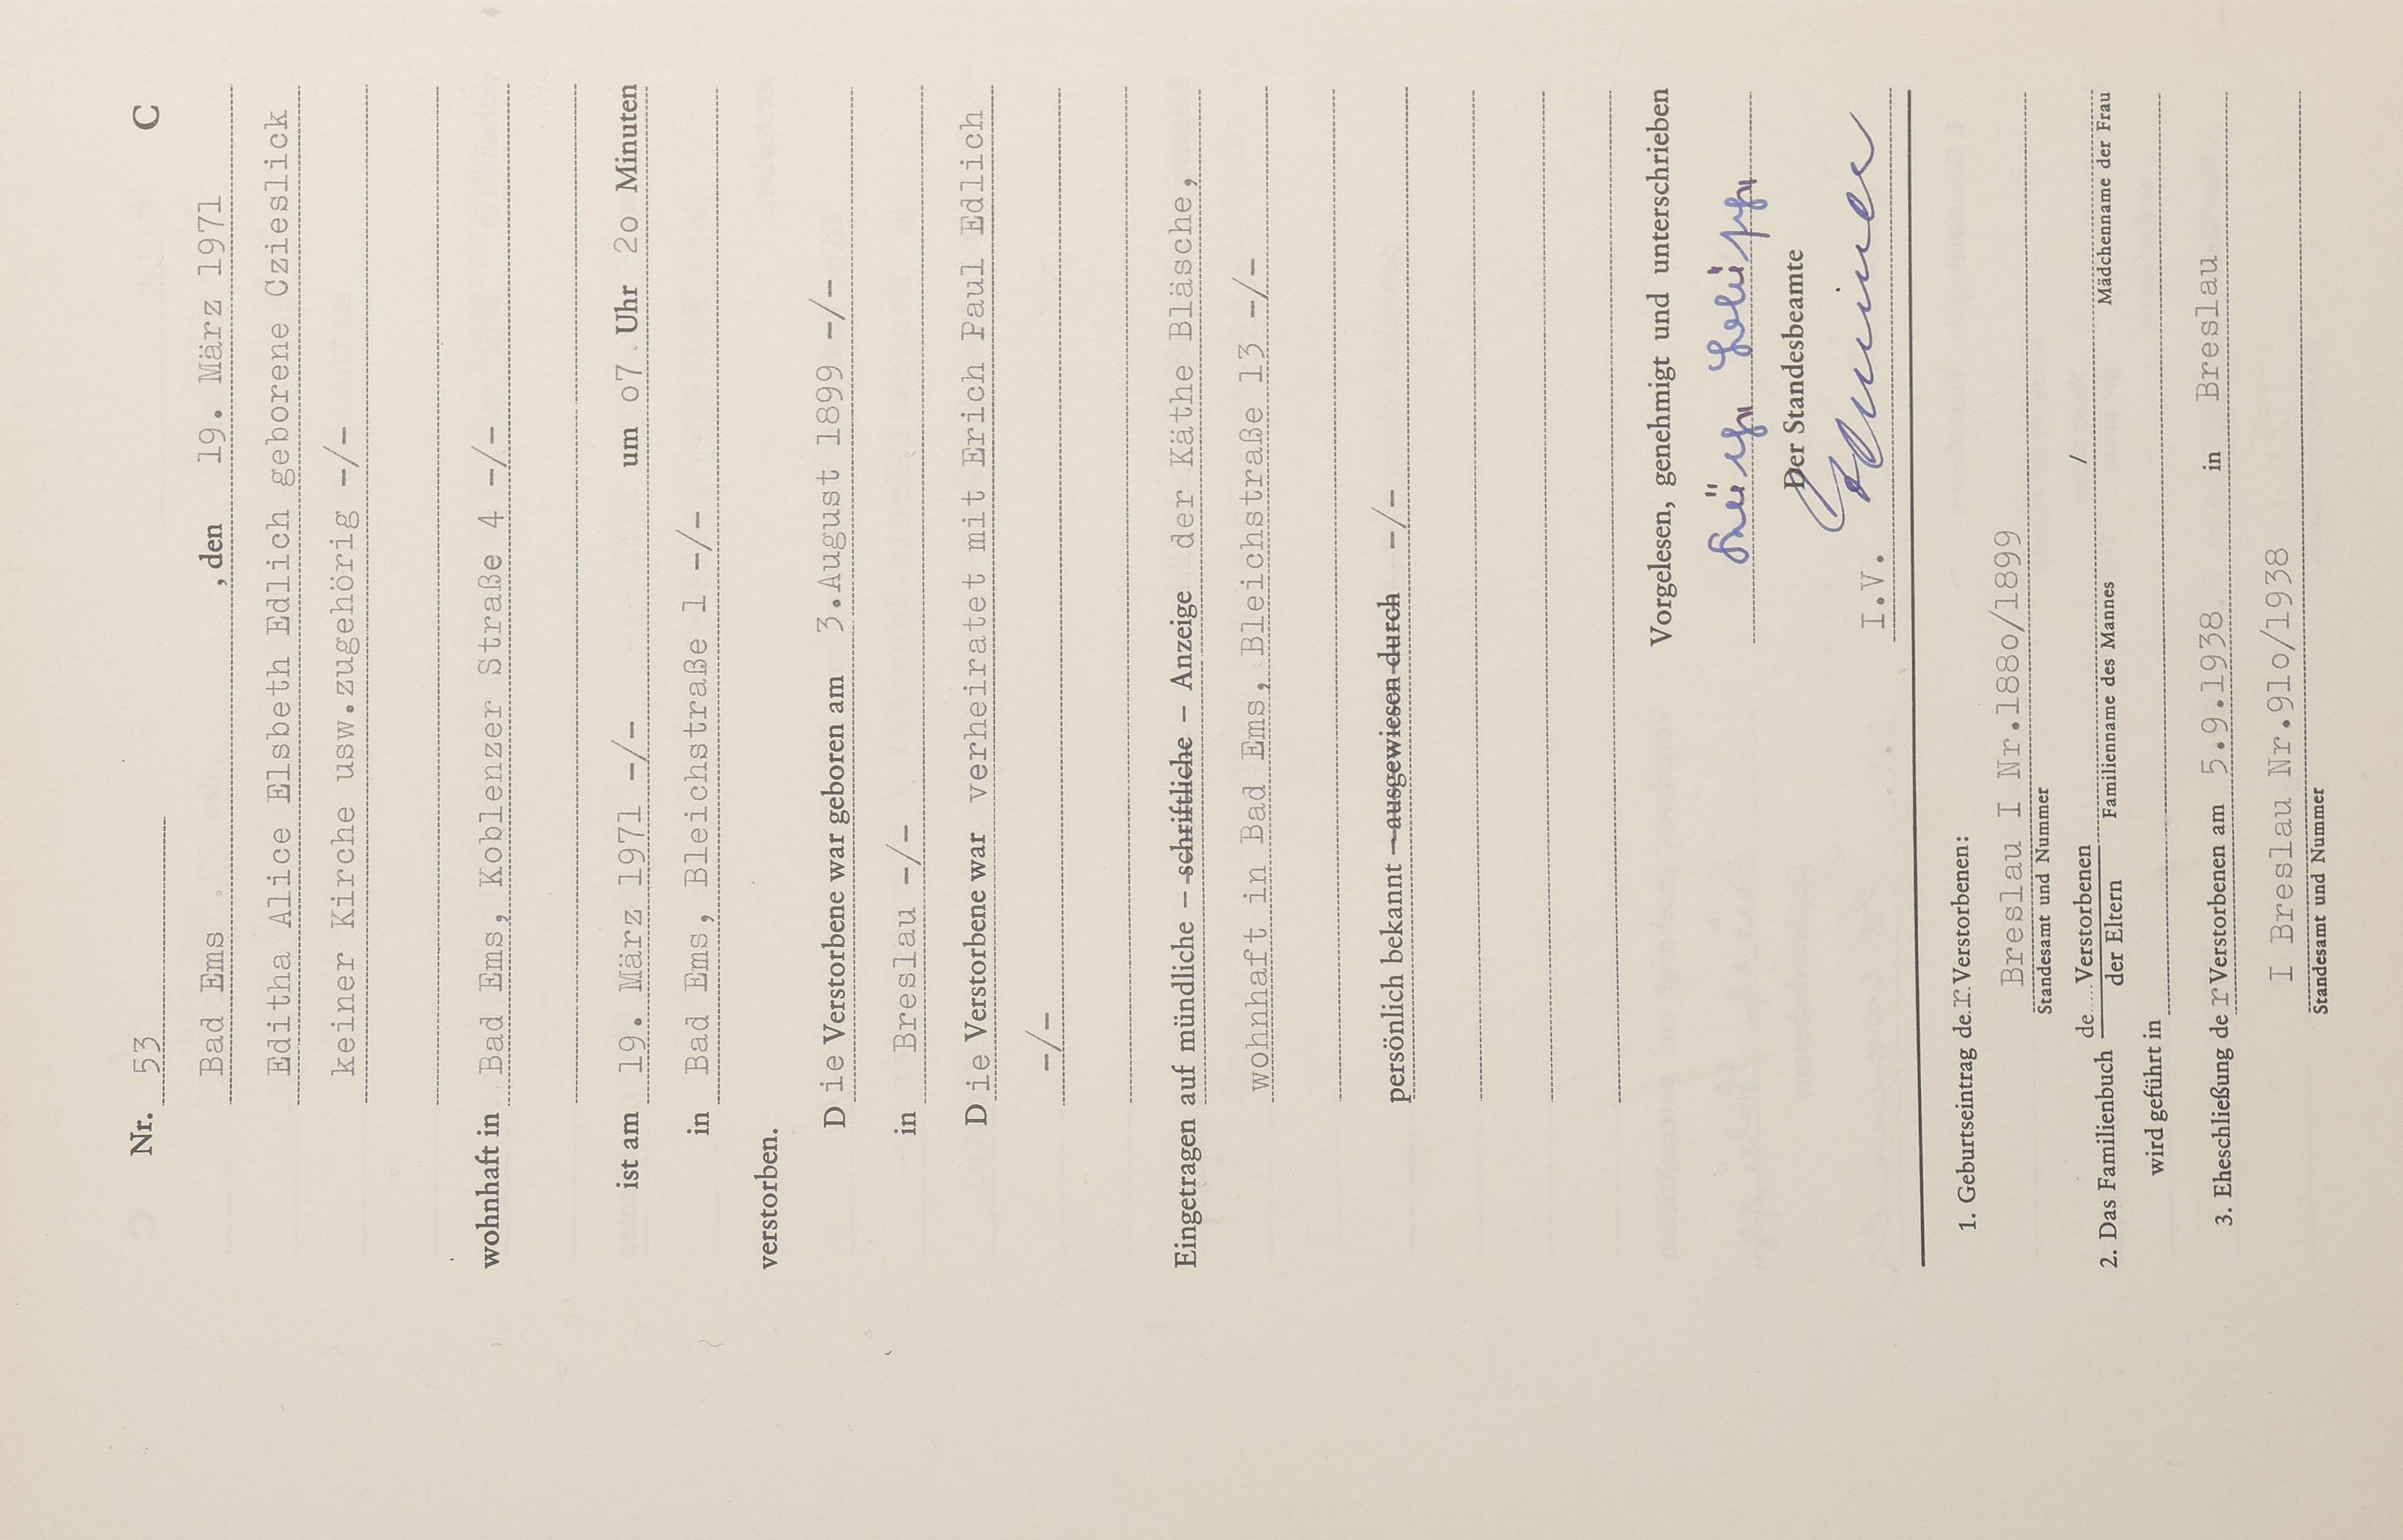 Nr. 53 C
Bad Ems , den 19. März 1971
Editha Alice Elsbeth Edlich geborene Czieslick
keiner Kirche usw.zugehörig -/-
wohnhaft in Bad Ems, Koblenzer Straße 4 -/-
ist am 19. März 1971 -/- um o7 Uhr 2o Minuten
in Bad Ems, Bleichstraße 1 -/-
verstorben.
D ie Verstorbene war geboren am 3.August 1899 -/-
in Breslau -/-
D ie Verstorbene war verheiratet mit Erich Paul Edlich
-/-
Eingetragen auf mündliche – schriftliche – Anzeige der Käthe Bläsche,
wohnhaft in Bad Ems, Bleichstraße 13 -/-
persönlich bekannt – ausgewiesen durch -/-
Vorgelesen, genehmigt und unterschrieben
Der Standesbeamte
I.V.
1. Geburtseintrag der Verstorbenen:
Breslau I Nr.188o/1899
Standesamt und Nummer
2. Das Familienbuch de.... Verstorbenen /
der Eltern Familienname des Mannes Mädchenname der Frau
wird geführt in
3. Eheschließung der Verstorbenen am 5.9.1938 in Breslau
I Breslau Nr.91o/1938
Standesamt und Nummer